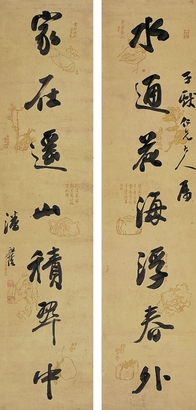 水通花海浮春外
子猷仁兄大人属
家在遥山積翠中
潘